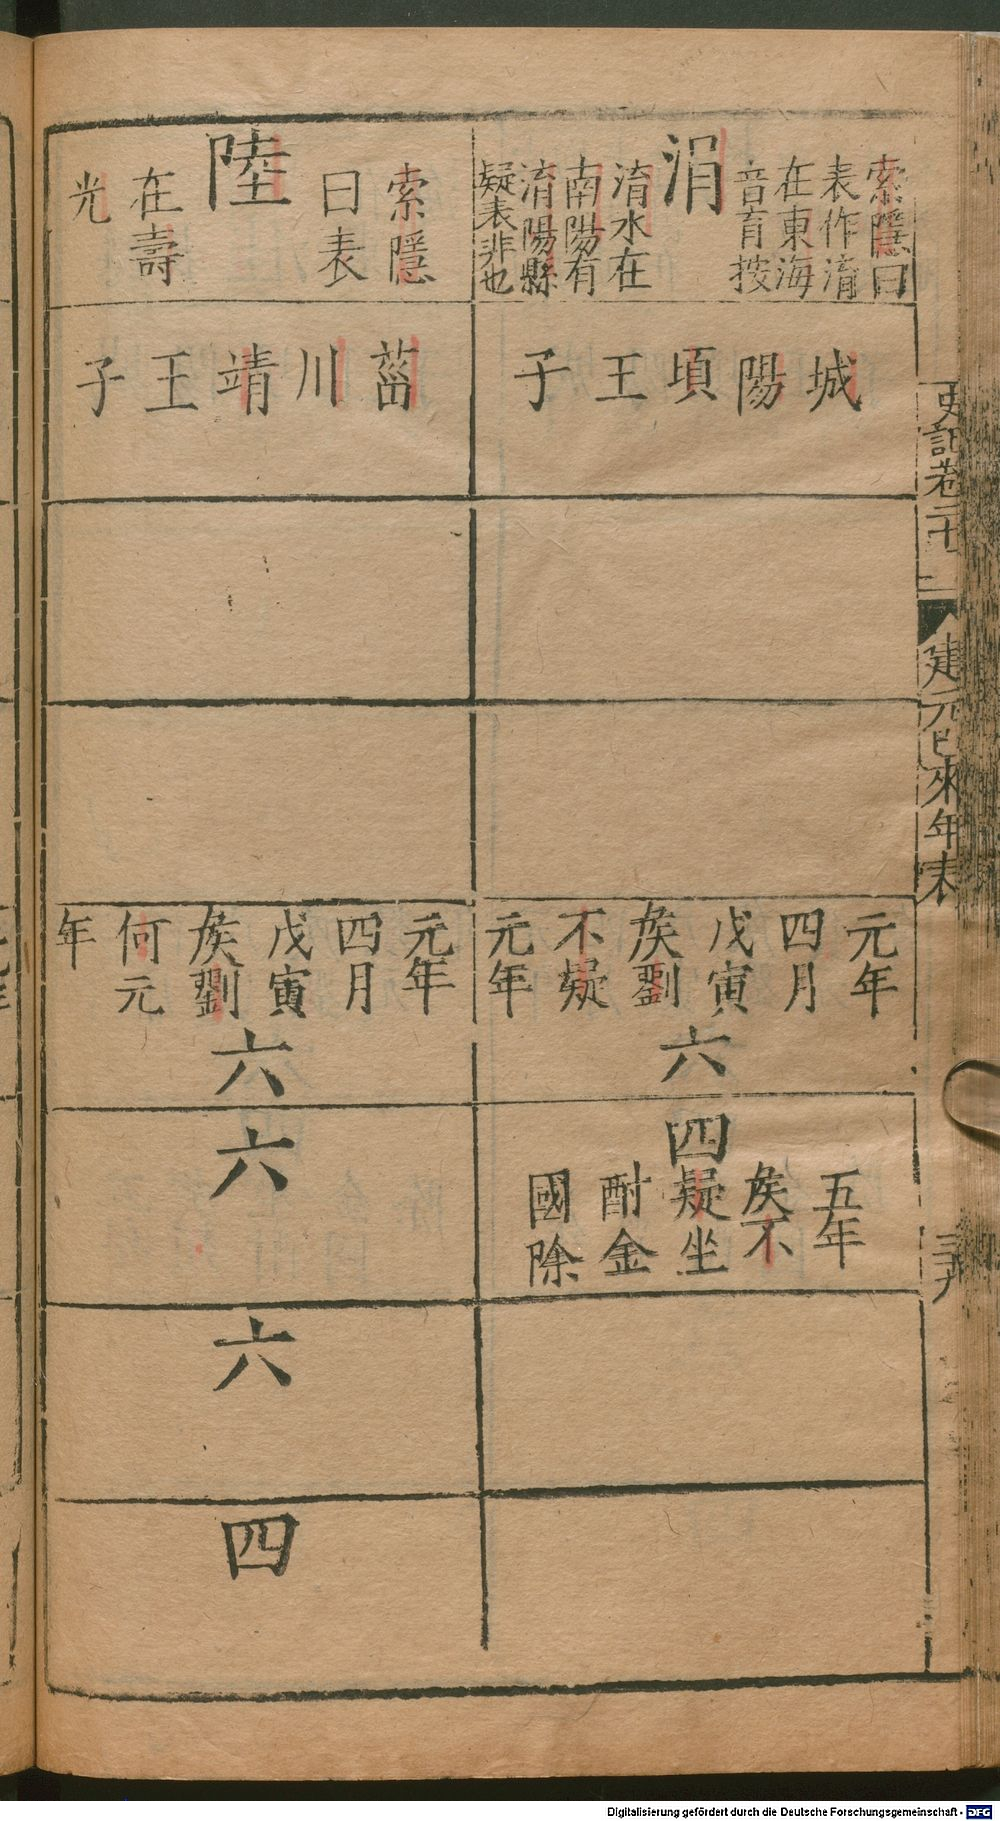 史記卷二十一
建元已來年表
三十九
涓
索隱曰
表作淯
在東海
音育按
淯水在
南陽有
淯陽縣
疑表非也
城陽頃王子
元年
四月
戊寅
矦劉
不疑
元年
六
四
五年
矦不
疑坐
酎金
國除
陸
索隱
曰表
在壽
光
菑川靖王子
元年
四月
戊寅
矦劉
何元
年
六
六
六
四
Digitalisierung gefördert durch die Deutsche Forschungsgemeinschaft - DFG